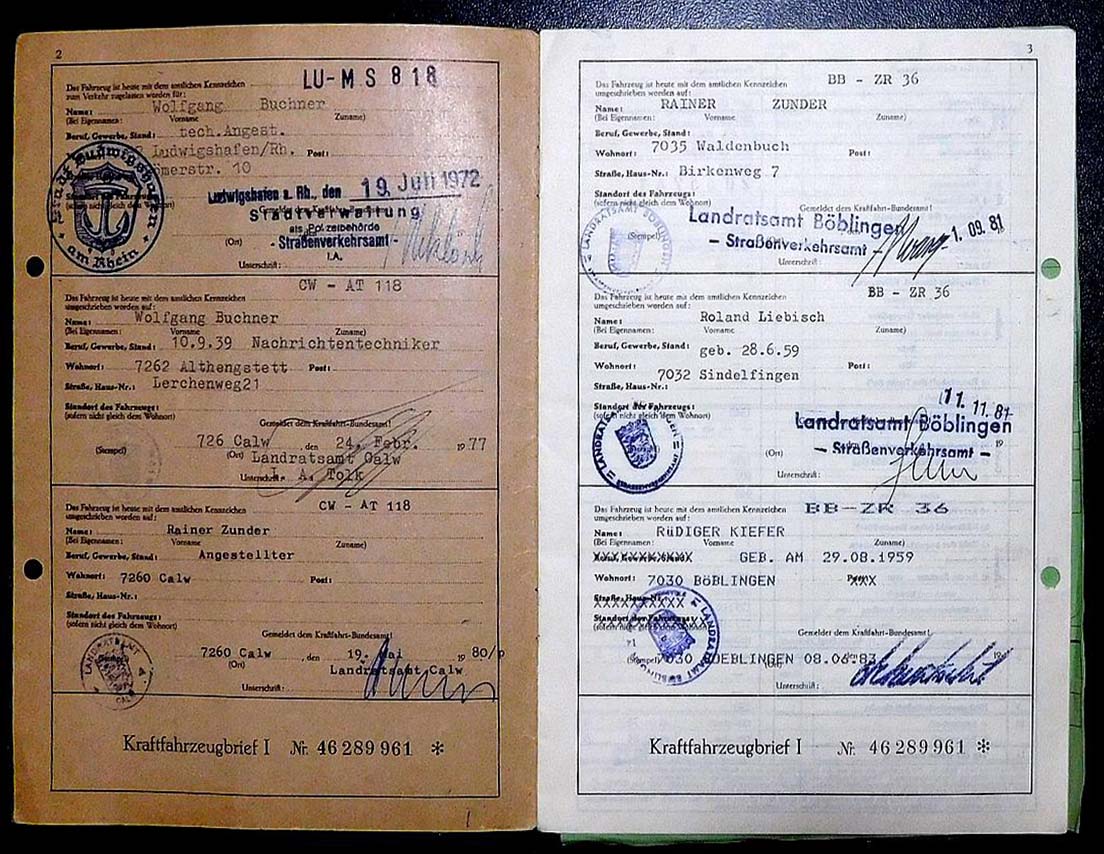 2
Das Fahrzeug ist heute mit dem amtlichen Kennzeichen LU-MS 818
zum Verkehr zugelassen worden für:
Name: Wolfgang Buchner
(Bei Eigennamen: Vorname Zuname)
Beruf, Gewerbe, Stand: tech.Angest.
Ludwigshafen/Rh. Post:
merstr. 10
Stadt Ludwigshafen am Rhein
Ludwigshafen a. Rh., den 19. Juli 1972
Stadtverwaltung
als Polizeibehörde
(Ort) - Straßenverkehrsamt -
I.A.
Unterschrift:
Das Fahrzeug ist heute mit dem amtlichen Kennzeichen CW - AT 118
umgeschrieben worden auf:
Name: Wolfgang Buchner
(Bei Eigennamen: Vorname Zuname)
Beruf, Gewerbe, Stand: 10.9.39 Nachrichtentechniker
Wohnort: 7262 Althengstett Post:
Straße, Haus-Nr.: Lerchenweg21
Standort des Fahrzeugs:
(sofern nicht gleich dem Wohnort)
Gemeldet dem Kraftfahrt-Bundesamt!
(Stempel) 726 Calw, den 24. Febr. 1977
(Ort) Landratsamt Calw
Unterschrift: I. A. Tolk
Das Fahrzeug ist heute mit dem amtlichen Kennzeichen CW - AT 118
umgeschrieben worden auf:
Name: Rainer Zunder
(Bei Eigennamen: Vorname Zuname)
Beruf, Gewerbe, Stand: Angestellter
Wohnort: 7260 Calw Post:
Straße, Haus-Nr.:
Standort des Fahrzeugs:
(sofern nicht gleich dem Wohnort)
Gemeldet dem Kraftfahrt-Bundesamt!
7260 Calw, den 19. Mai 1980/p
(Ort) Landratsamt Calw
Unterschrift:
Kraftfahrzeugbrief I Nr. 46 289 961 *
3
Das Fahrzeug ist heute mit dem amtlichen Kennzeichen BB - ZR 36
umgeschrieben worden auf:
Name: RAINER ZUNDER
(Bei Eigennamen: Vorname Zuname)
Beruf, Gewerbe, Stand:
Wohnort: 7035 Waldenbuch Post:
Straße, Haus-Nr.: Birkenweg 7
Standort des Fahrzeugs:
(sofern nicht gleich dem Wohnort)
Gemeldet dem Kraftfahrt-Bundesamt!
LANDRATSAMT BÖBLINGEN
(Stempel) Landratsamt Böblingen
- Straßenverkehrsamt - 1. 09. 81
Unterschrift:
Das Fahrzeug ist heute mit dem amtlichen Kennzeichen BB - ZR 36
umgeschrieben worden auf:
Name: Roland Liebisch
(Bei Eigennamen: Vorname Zuname)
Beruf, Gewerbe, Stand: geb. 28.6.59
Wohnort: 7032 Sindelfingen Post:
Straße, Haus-Nr.:
Standort des Fahrzeugs:
(sofern nicht gleich dem Wohnort)
11. 11. 81
Landratsamt Böblingen
(Ort) - Straßenverkehrsamt - 19
Unterschrift:
Das Fahrzeug ist heute mit dem amtlichen Kennzeichen BB-ZR 36
umgeschrieben worden auf:
Name: RüDIGER KIEFER
(Bei Eigennamen: Vorname Zuname)
GEB. AM 29.08.1959
Wohnort: 7030 BöBLINGEN
Straße, Haus-Nr.
Standort des Fahrzeugs:
(sofern nicht gleich dem Wohnort)
Gemeldet dem Kraftfahrt-Bundesamt!
(Stempel) 7030 BOEBLINGEN 08.06.83
Unterschrift:
Kraftfahrzeugbrief I Nr. 46 289 961 *